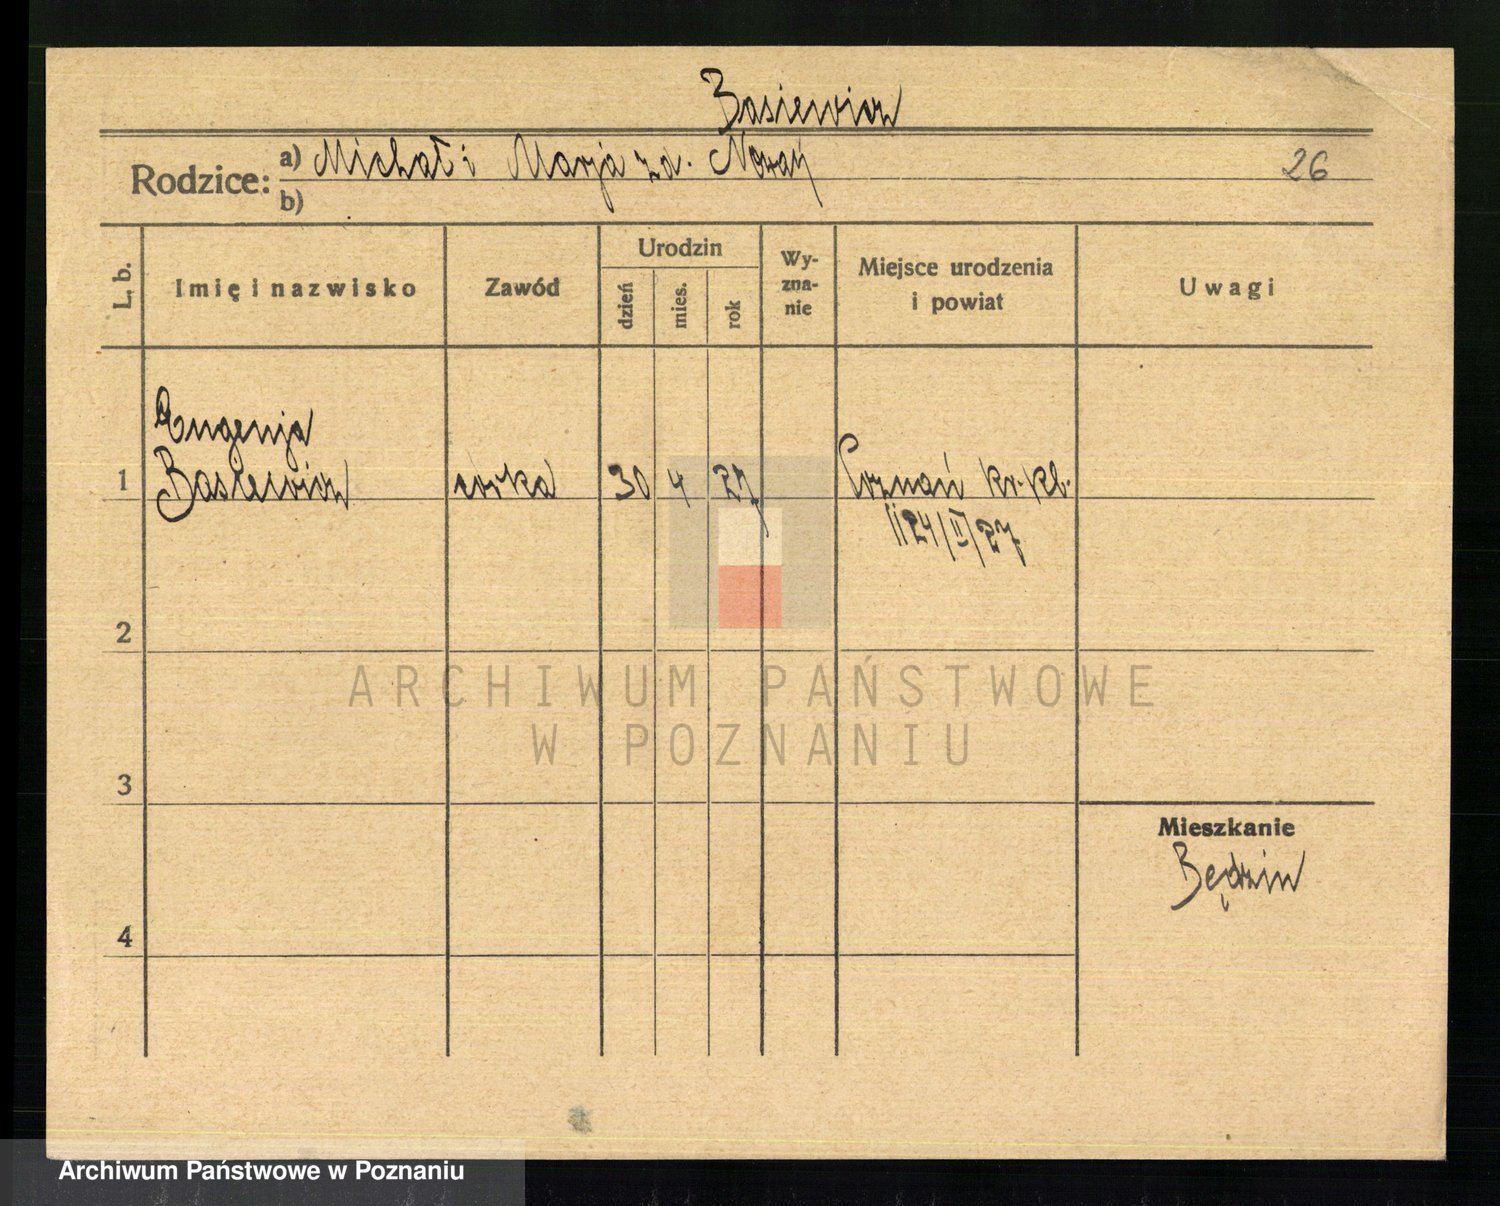 Basiewicz
Rodzice: a) Michał i Marja zd. Nowak 26
b)
L. b. Imię i nazwisko Zawód Urodzin dzień mies. rok Wyznanie Miejsce urodzenia i powiat Uwagi
Eugenja
1 Basiewicz córka 30 4 27 Poznań kr. kl.
1124/II/27
2
ARCHIWUM PAŃSTWOWE
W POZNANIU
3
Mieszkanie
Będzin
4
Archiwum Państwowe w Poznaniu